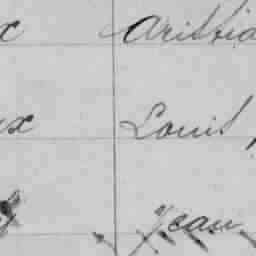 x Aristid
ux Louis
Jean